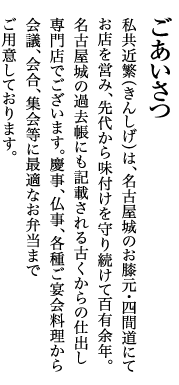 ごあいさつ
私共近繁(きんしげ)は、名古屋城のお膝元・四間道にて
お店を営み、先代から味付けを守り続けて百有余年。
名古屋城の過去帳にも記載される古くからの仕出し
専門店でございます。慶事、仏事、各種ご宴会料理から
会議、会合、集会等に最適なお弁当まで
ご用意しております。